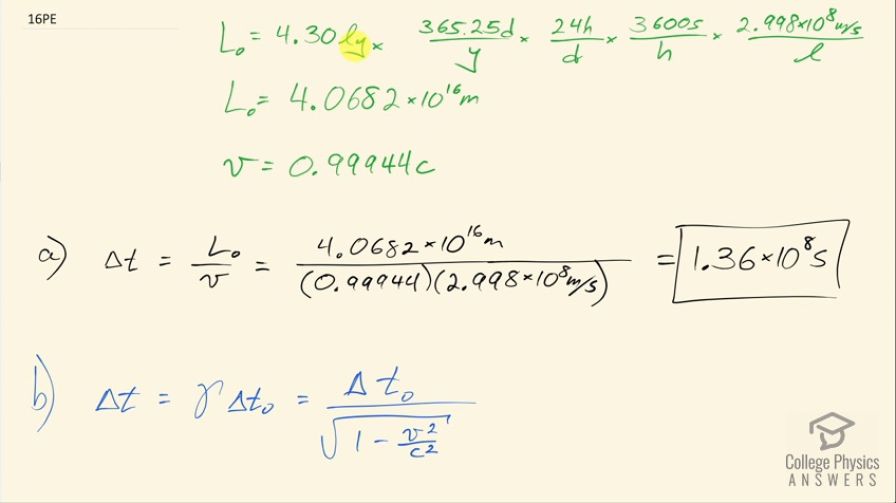 16PE
L₀ = 4.30 ly × 365.25d/y × 24h/d × 3600s/h × 2.998×10⁸ m/s/l
L₀ = 4.0682×10¹⁶ m
v = 0.99944c
a) Δt = L₀/v = 4.0682×10¹⁶ m/(0.99944)(2.998×10⁸ m/s) = 1.36×10⁸ s
b) Δt = γΔt₀ = Δt₀/√(1 - v²/c²)
College Physics
ANSWERS